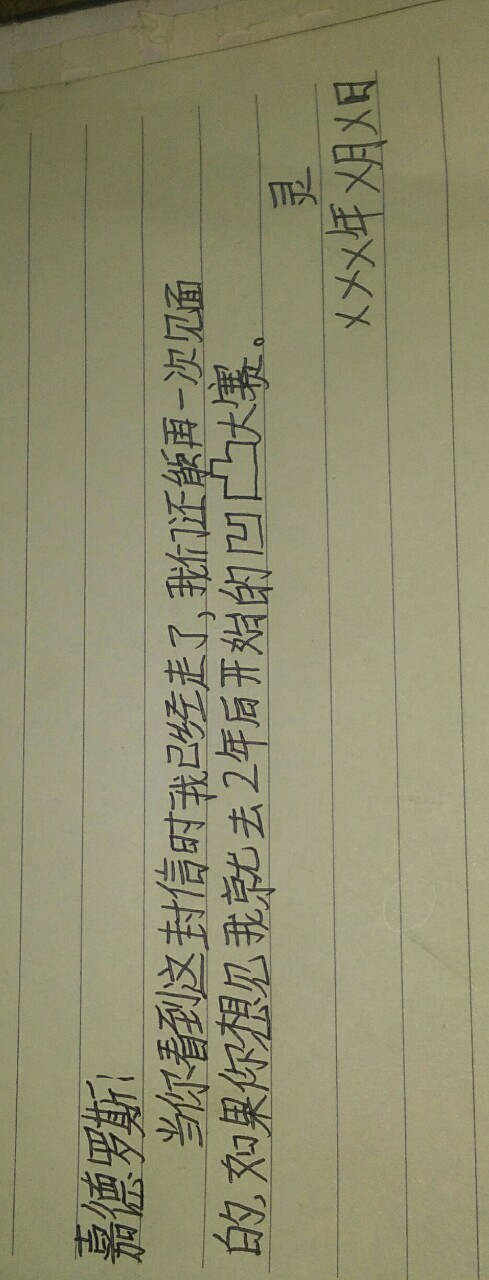 嘉德罗斯：
当你看到这封信时我已经走了，我们还能再一次见面
的，如果你想见我就去2年后开始的凹凸大赛。
灵
XXX年X月X日